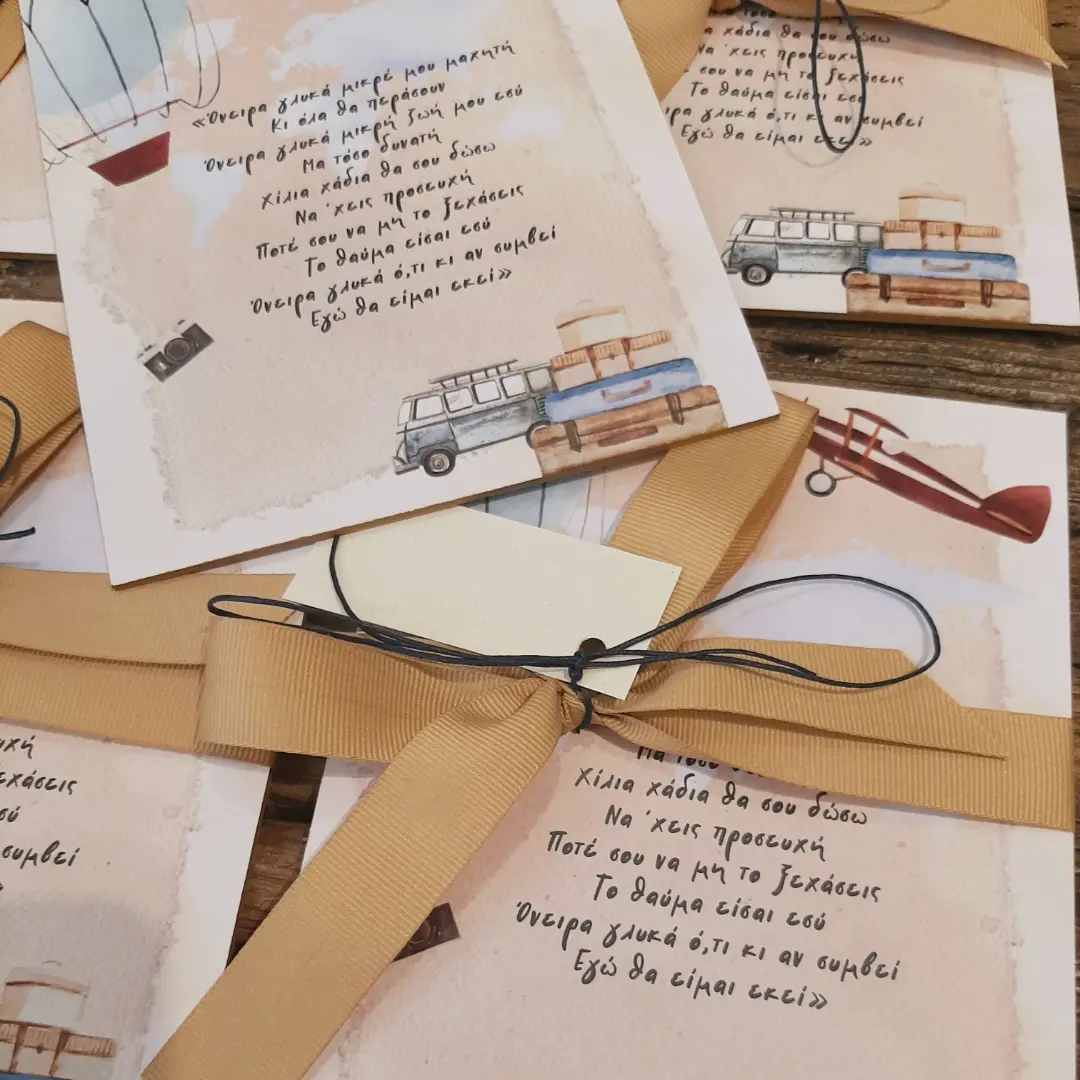 «Όνειρα γλυκά μικρέ μου μαχητή
Κι όλα θα περάσουν
Όνειρα γλυκά μικρή ζωή μου εσύ
Μα τόσο δυνατή
Χίλια χάδια θα σου δώσω
Να 'χεις προσευχή
Ποτέ σου να μη το ξεχάσεις
Το θαύμα είσαι εσύ
Όνειρα γλυκά ό,τι κι αν συμβεί
Εγώ θα είμαι εκεί»
Μα τόσο
χάδια θα σου δώσω
Να 'χεις προσευχή
σου να μη το ξεχάσεις
Το θαύμα είσαι εσύ
γλυκά ό,τι κι αν συμβεί
Εγώ θα είμαι εκεί»
συμβεί
Μα τόσο
Χίλια χάδια θα σου δώσω
Να 'χεις προσευχή
Ποτέ σου να μη το ξεχάσεις
Το θαύμα είσαι εσύ
Όνειρα γλυκά ό,τι κι αν συμβεί
Εγώ θα είμαι εκεί»